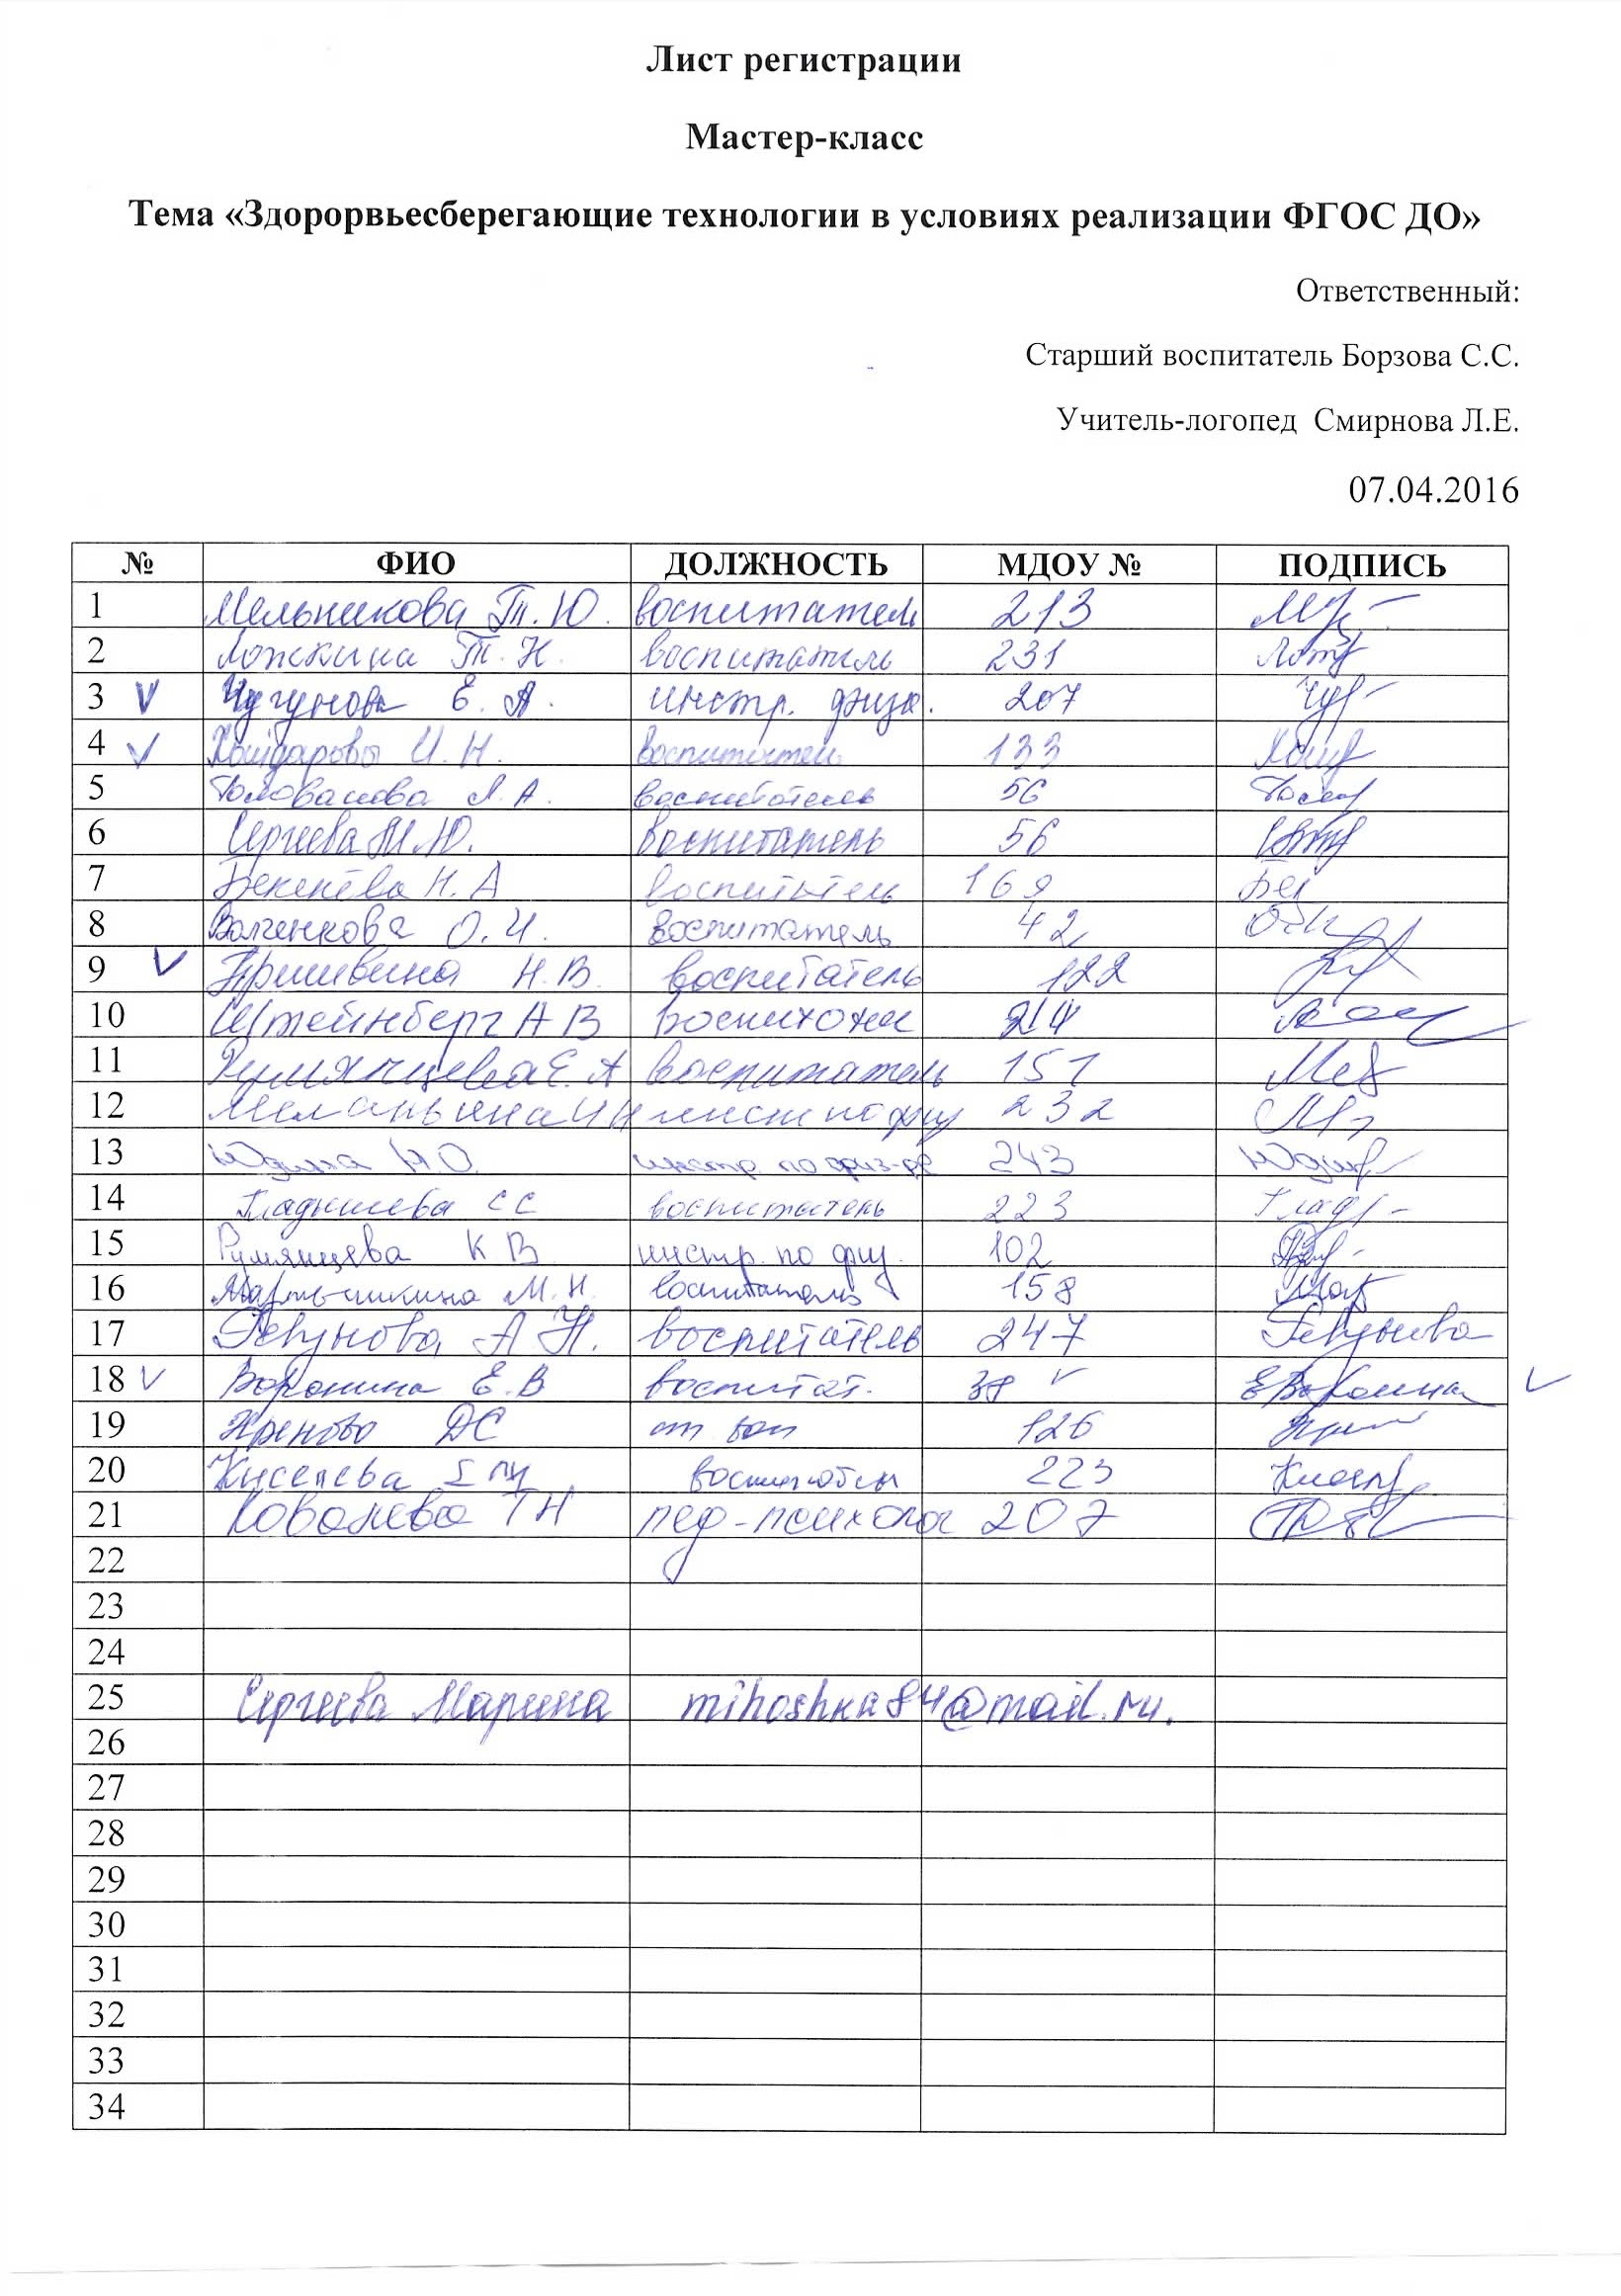 Лист регистрации
Мастер-класс
Тема «Здорорвьесберегающие технологии в условиях реализации ФГОС ДО»
Ответственный:
Старший воспитатель Борзова С.С.
Учитель-логопед Смирнова Л.Е.
07.04.2016
№ ФИО ДОЛЖНОСТЬ МДОУ № ПОДПИСЬ
1 Мельникова Т.Ю. воспитатель 213
2 Ложкина Т.Н. воспитатель 231
3 V Чугунова Е.А. инстр. физо. 207
4 V И.Н. воспитатель 133
5 Голованова Л.А. воспитатель 56
6 Сергеева М.Ю. воспитатель 56
7 Н.А воспитатель 169
8 Волченкова О.И. воспитатель 42
9 V Пришивина Н.В. воспитатель 122
10 Штейнберг А В 214
11 Румянцева Е.А воспитатель 151
12 Меланьина И Н инст по физ 232
13 Юдина Н.О. инстр. по физ-ре 243
14 Гладышева СС воспитатель 223
15 Румянцева К В инстр. по физ. 102
16 Мартышкина М.Н. воспитатель 158
17 А Н. воспитатель 247
18 V Воронина Е.В воспитат. 38 V ЕВоронина V
19 ДС 126
20 Киселева воспитатель 223
21 Ковалева ТН пед-психолог 207
22
23
24
25 Сергеева Марина mihoshka84@mail.ru.
26
27
28
29
30
31
32
33
34